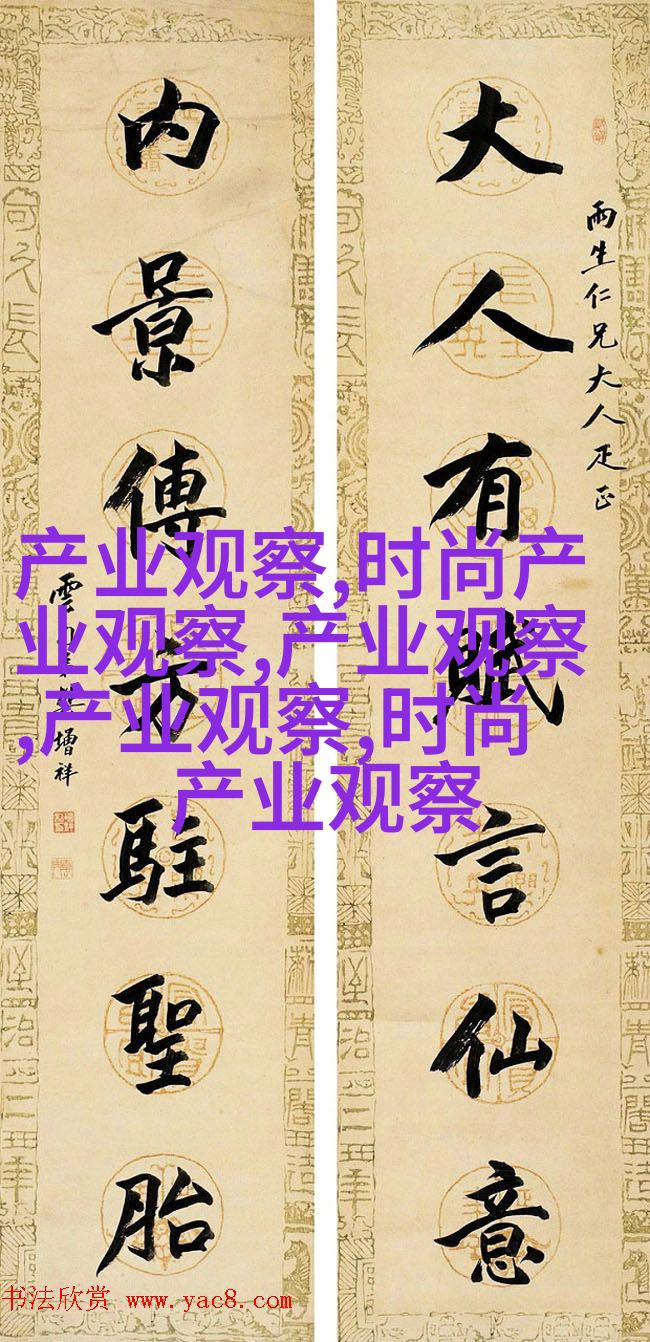 大人有賦言仙意
雨生仁兄大人疋正
内景傳方駐聖胎
雲門樊增祥
产业观察,时尚产
业观察,产业观察
,产业观察,时尚
产业观察
书法欣赏 www.yac8.com